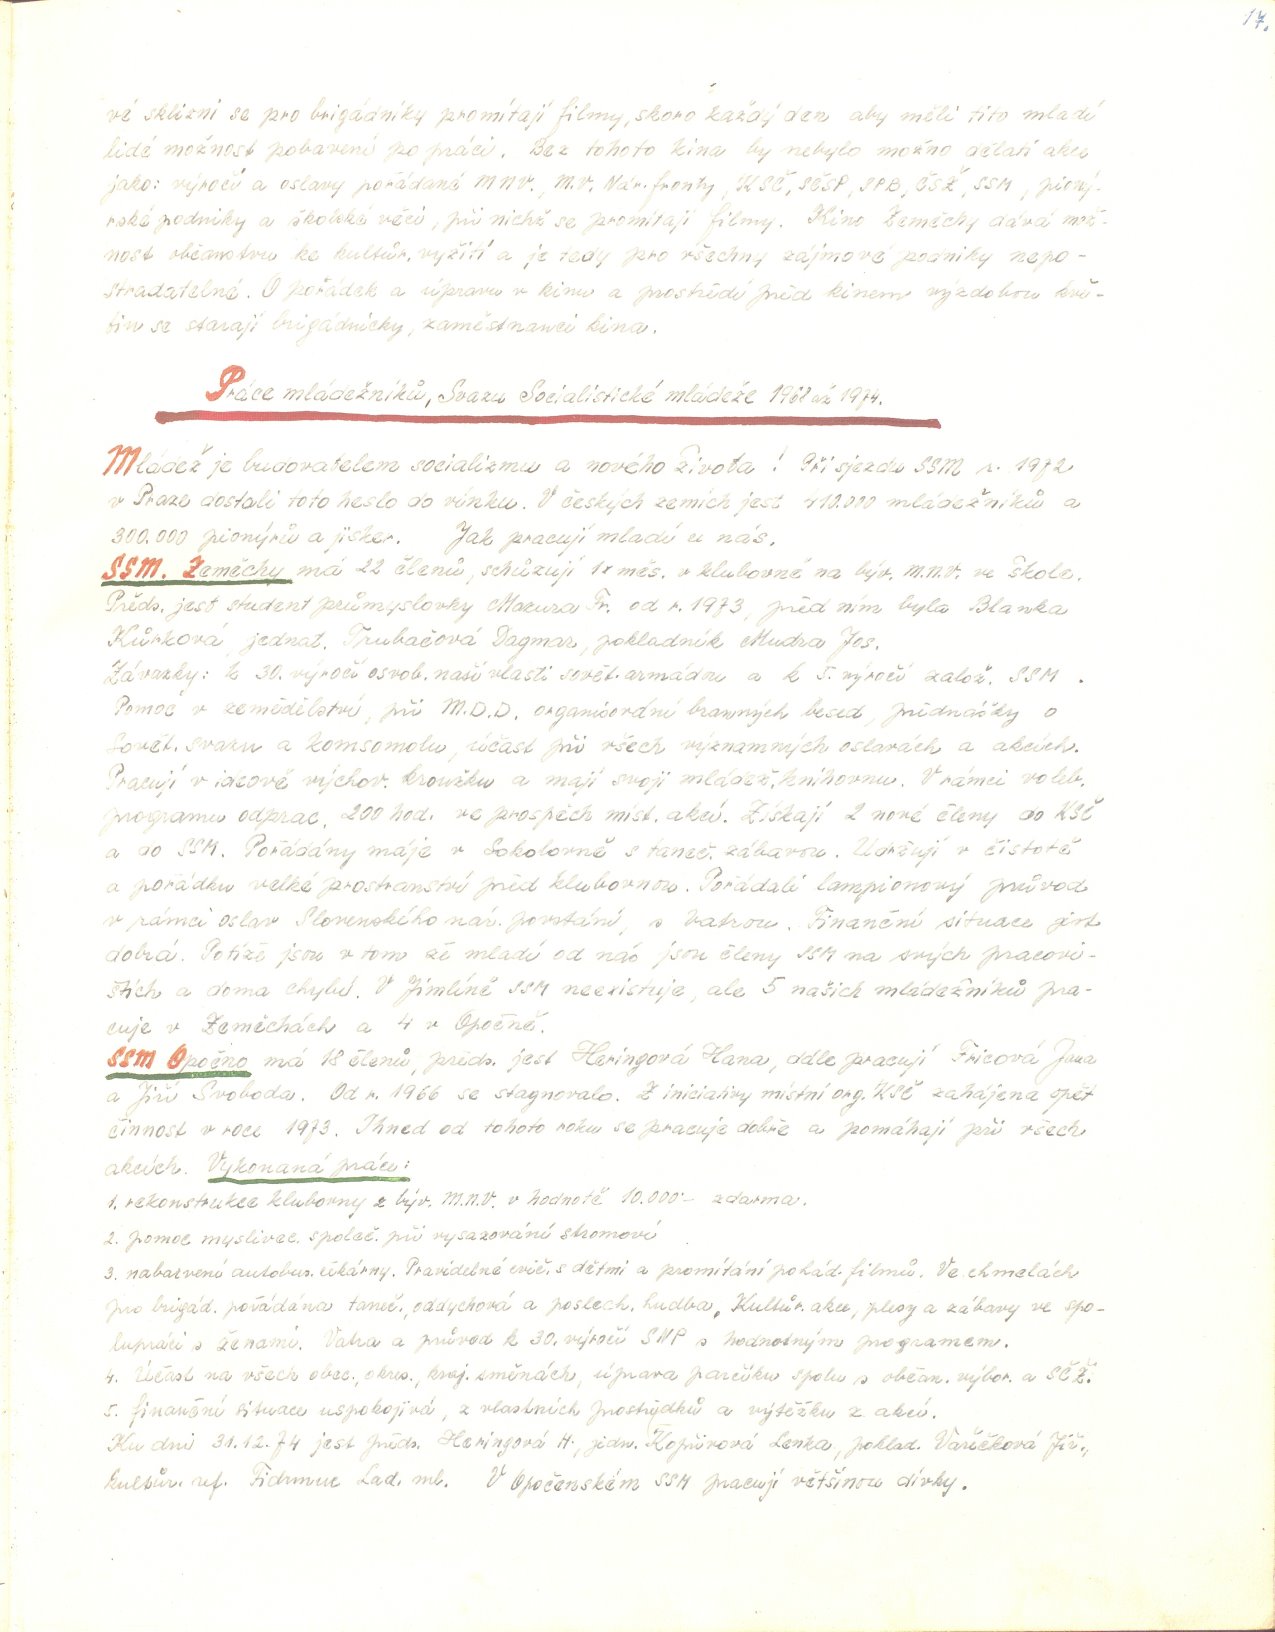 17.
vé sklizni se pro brigádníky promítají filmy, skoro každý den aby měli tito mladí
lidé možnost pobavení po práci. Bez tohoto kina by nebylo možno dělati akce
jako: výročí a oslavy pořádané MNV., M.V. Nár. fronty, KSČ, SČSP, SPB, ČSŽ, SSM, pioný-
rské podniky a školské věci, při nichž se promítají filmy. Kino Zeměchy dává mož-
nost občanstvu ke kultúr. vyžití a je tedy pro všechny zájmové podniky nepo-
stradatelné. O pořádek a úpravu v kinu a prostředí před kinem výzdobou kvě-
tin se starají brigádnicky, zaměstnanci kina.
Práce mládežníků, Svazu Socialistické mládeže 1968 až 1974.
Mládež je budovatelem socializmu a nového života! Při sjezdu SSM r. 1972
v Praze dostali toto heslo do vínku. V českých zemích jest 410.000 mládežníků a
300.000 pionýrů a jisker. Jak pracují mladí u nás.
SSM. Zeměchy má 22 členů, schůzují 1x měs. v klubovně na býv. M.N.V. ve škole.
Předs. jest student průmyslovky Mazura Fr. od r. 1973, před ním byla Blanka
Kůrková, jednat. Trubačová Dagmar, pokladník Mudra Jos.
Závazky: k 30. výročí osvob. naší vlasti sovět. armádou a k 5. výročí založ. SSM.
Pomoc v zemědělství, při M.D.D. organisování branných besed, přednášky o
Sovět. svazu a komsomolu, účast při všech významných oslavách a akcích.
Pracují v ideové výchov. kroužku a mají svoji mládež. knihovnu. V rámci voleb.
programu odprac. 200 hod. ve prospěch míst. akcí. Získají 2 nové členy do KSČ
a do SSM. Pořádány máje v Sokolovně s taneč. zábavou. Udržují v čistotě
a pořádku velké prostranství před klubovnou. Pořádali lampionový průvod
v rámci oslav Slovenského nár. povstání, s vatrou. Finanční situace jest
dobrá. Potíže jsou v tom že mladí od nás jsou členy SSM na svých pracovi-
štích a doma chybí. V Jimlíně SSM neexistuje, ale 5 našich mládežníků pra-
cuje v Zeměchách a 4 v Opočně.
SSM Opočno má 18 členů, předs. jest Heringová Hana, dále pracují Fricová Jana
a Jiří Svoboda. Od r. 1966 se stagnovalo. Z iniciativy místní org. KSČ zahájena opět
činnost v roce 1973. Ihned od tohoto roku se pracuje dobře a pomáhají při všech
akcích. Vykonaná práce:
1. rekonstrukce klubovny z býv. M.N.V. v hodnotě 10.000·- zdarma.
2. pomoc myslivec. společ. při vysazování stromoví
3. nabarvení autobus. čekárny. Pravidelné cvič. s dětmi a promítání pohád. filmů. Ve chmelách
pro brigád. pořádána taneč., oddychová a poslech. hudba, Kultůr. akce, plesy a zábavy ve spo-
lupráci s ženami. Vatra a průvod k 30. výročí SNP s hodnotným programem.
4. Účast na všech obec., okres., kraj. směnách, úprava parčíku spolu s občan. výbor. a SČŽ.
5. finanční situace uspokojivá, z vlastních prostředků a výtěžku z akcí.
Ku dni 31.12.74 jest předs. Heringová H., jedn. Kopřivová Lenka, poklad. Vařečková Jiř.,
kultůr. ref. Fidrmuc Lad. ml. V Opočenském SSM pracují většinou dívky.